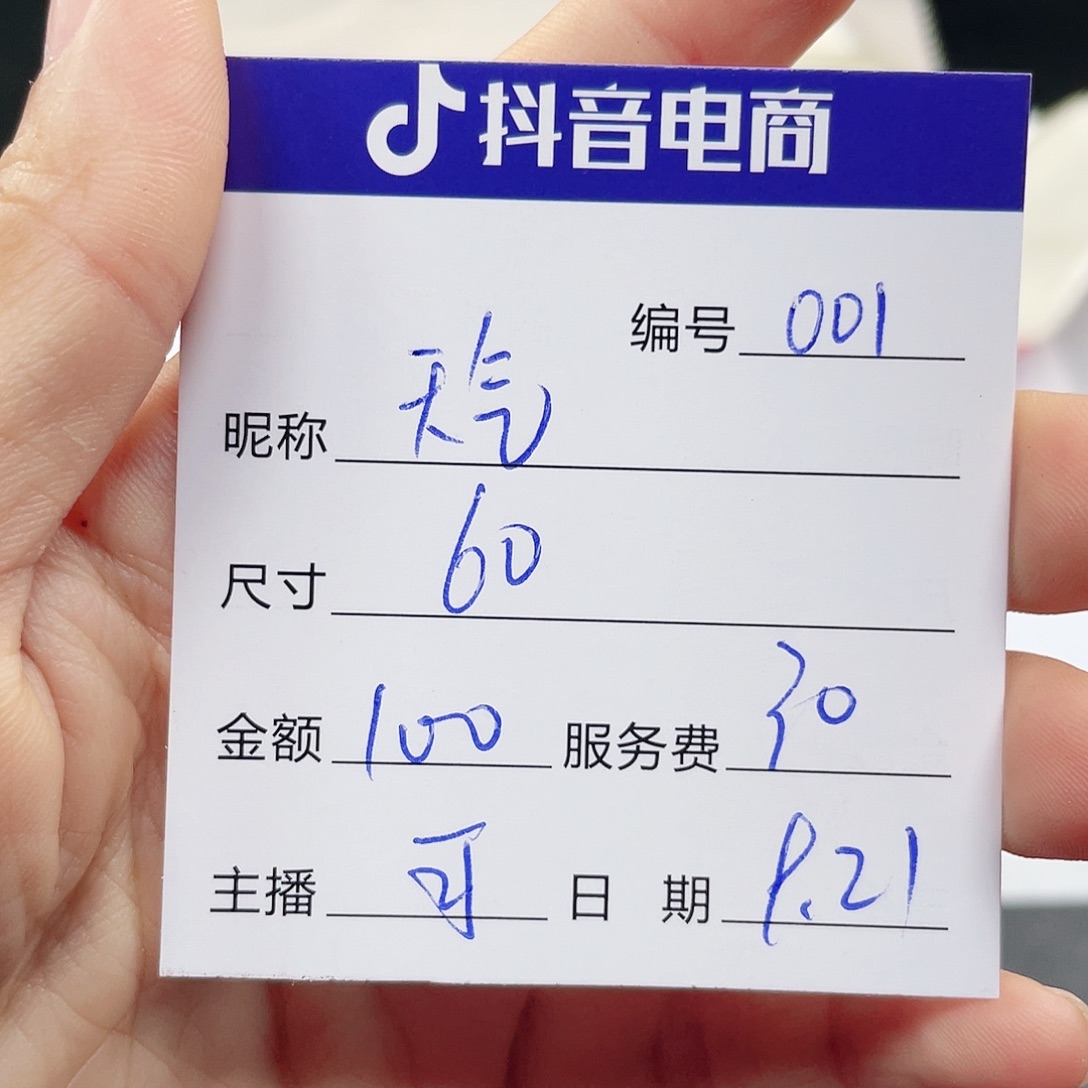 抖音电商
编号 001
昵称 天气
尺寸 60
金额 100 服务费 30
主播 可 日 期 9.21